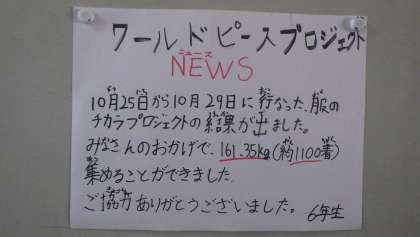 ワールドピースプロジェクト
ニュース
NEWS
10月25日から10月29日に行なった、服の
チカラプロジェクトの結果が出ました。
みなさんのおかげで、161.35kg(約1100着)
集めることができました。
ご協力ありがとうございました。 6年生